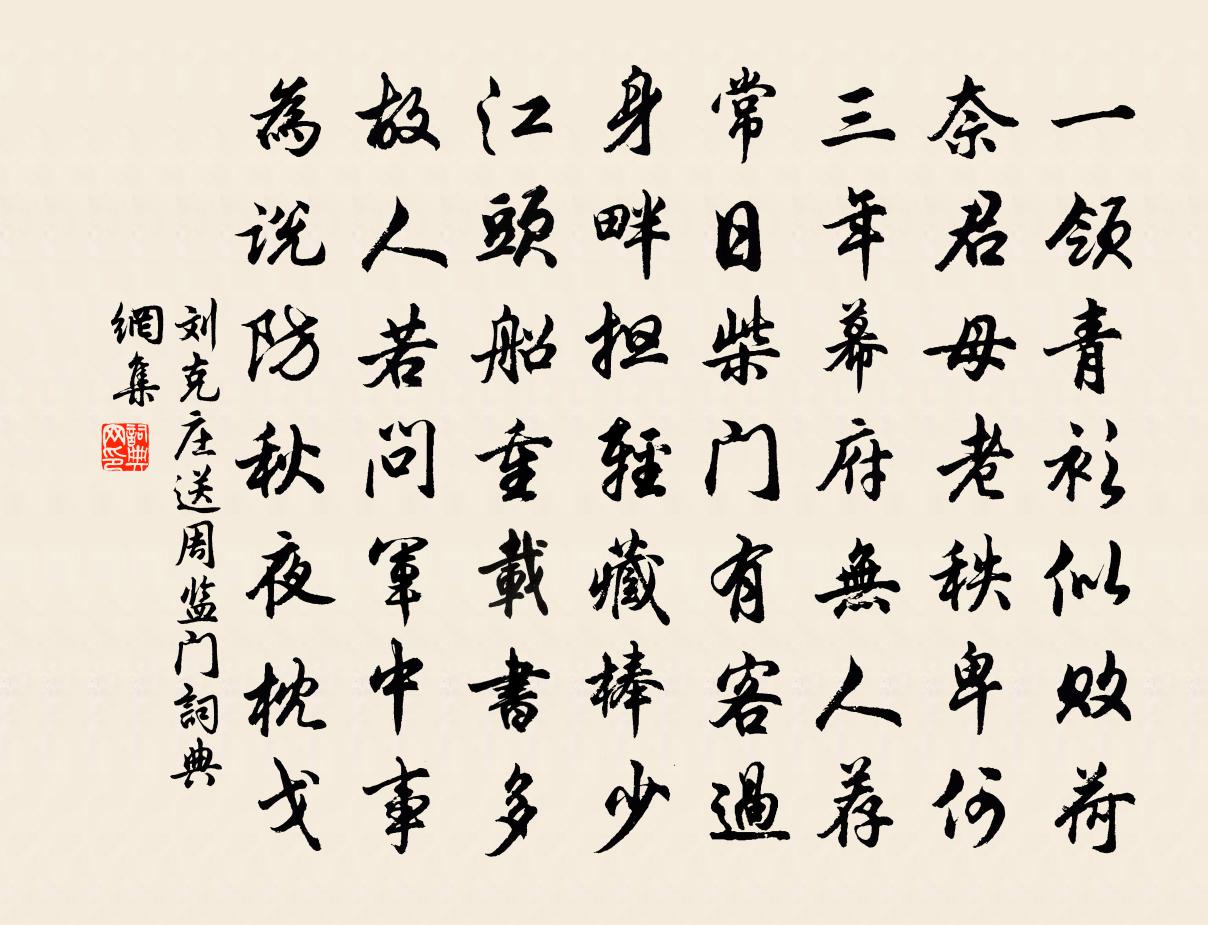 一領青衫似败荷
奈君母老秩卑何
三年幕府無人荐
常日柴门有客過
身畔担輕藏棒少
江頭船重載書多
故人若问軍中事
為说防秋夜枕戈
刘克庄送周监门詞典
網集
詞典网印